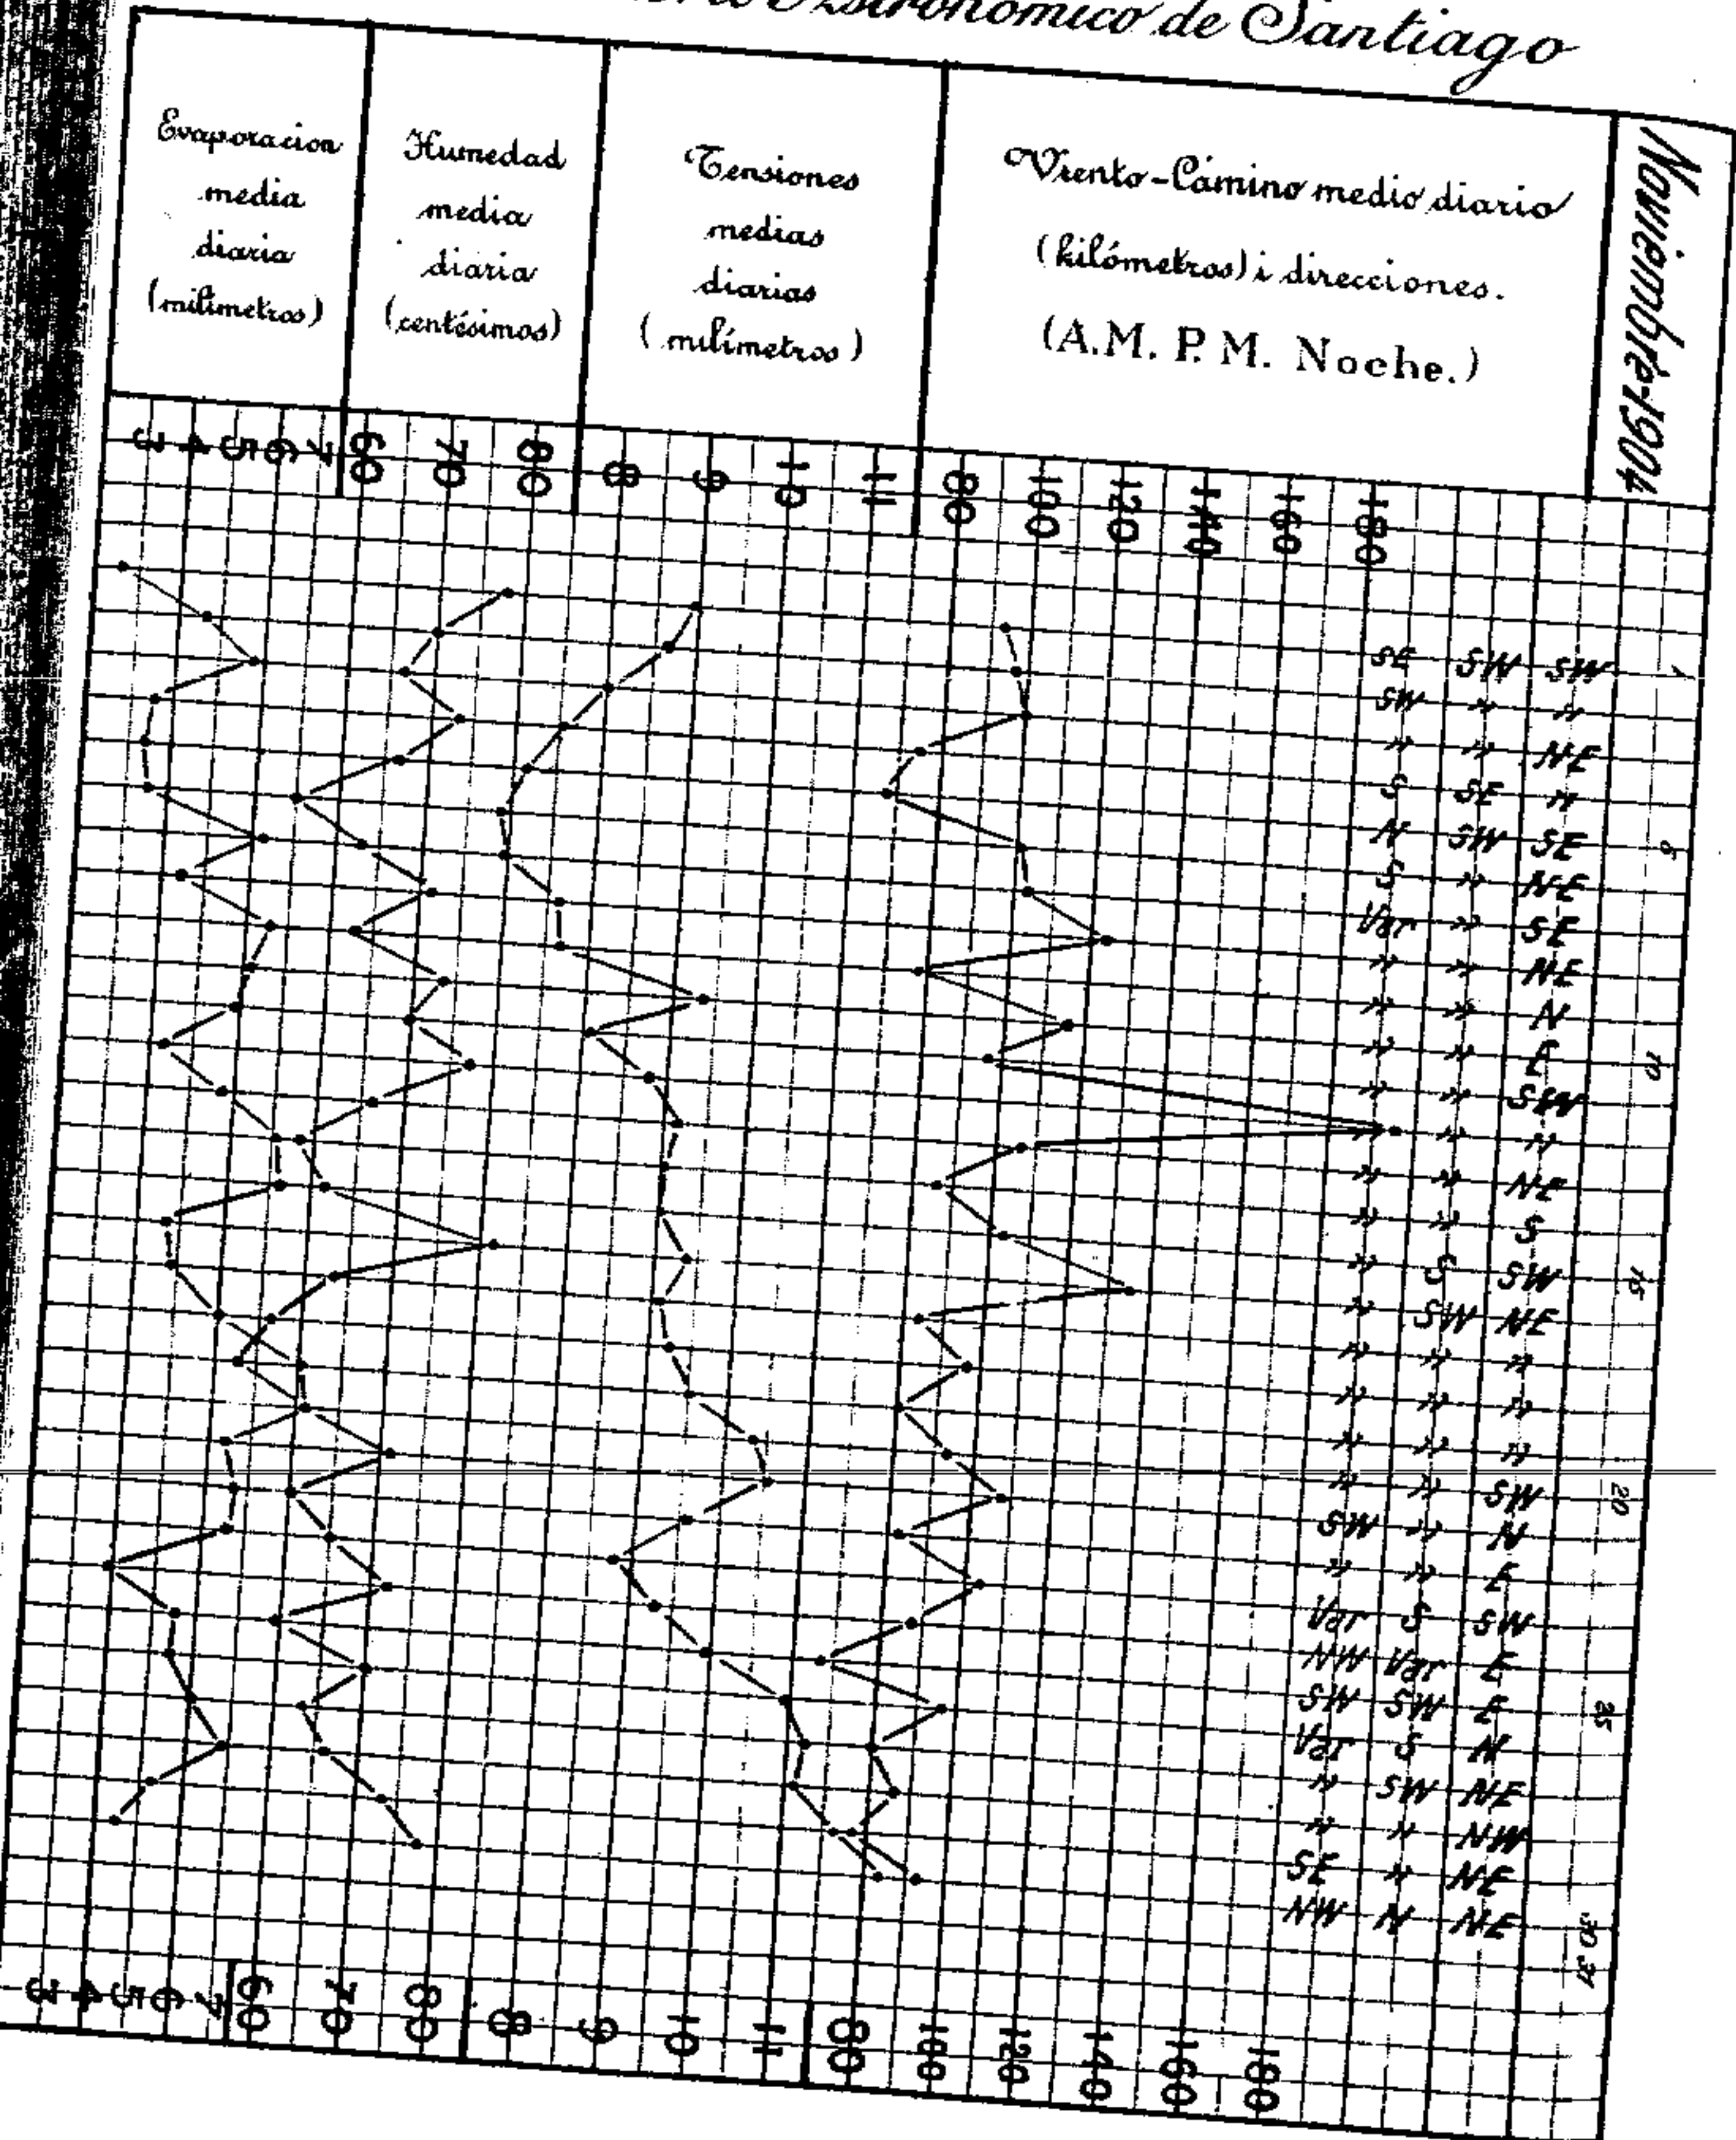 Astronómico de Santiago
Evaporacion
media
diaria
(milímetros)
Humedad
media
diaria
(centésimos)
Tensiones
medias
diarias
(milímetros)
Viento-Camino medio diario
(kilómetros) i direcciones.
(A.M. P.M. Noche.)
Noviembre-1904
3 4 5 6 7 60 70 80 8 9 10 11 80 100 120 140 160 180
SE SW SW 1
SW " "
" " NE
S SE "
N SW SE 5
S " NE
Var " SE
" " NE
" " N
" " E 10
" " SW
" " "
" " NE
" " S
" S SW 15
" SW NE
" " "
" " "
" " "
" " SW 20
SW " N
" " E
Var S SW
NW Var E
SW SW E 25
Var S N
" SW NE
" " NW
SE " NE
NW N NE 30 31
3 4 5 6 7 60 70 80 8 9 10 11 80 100 120 140 160 180